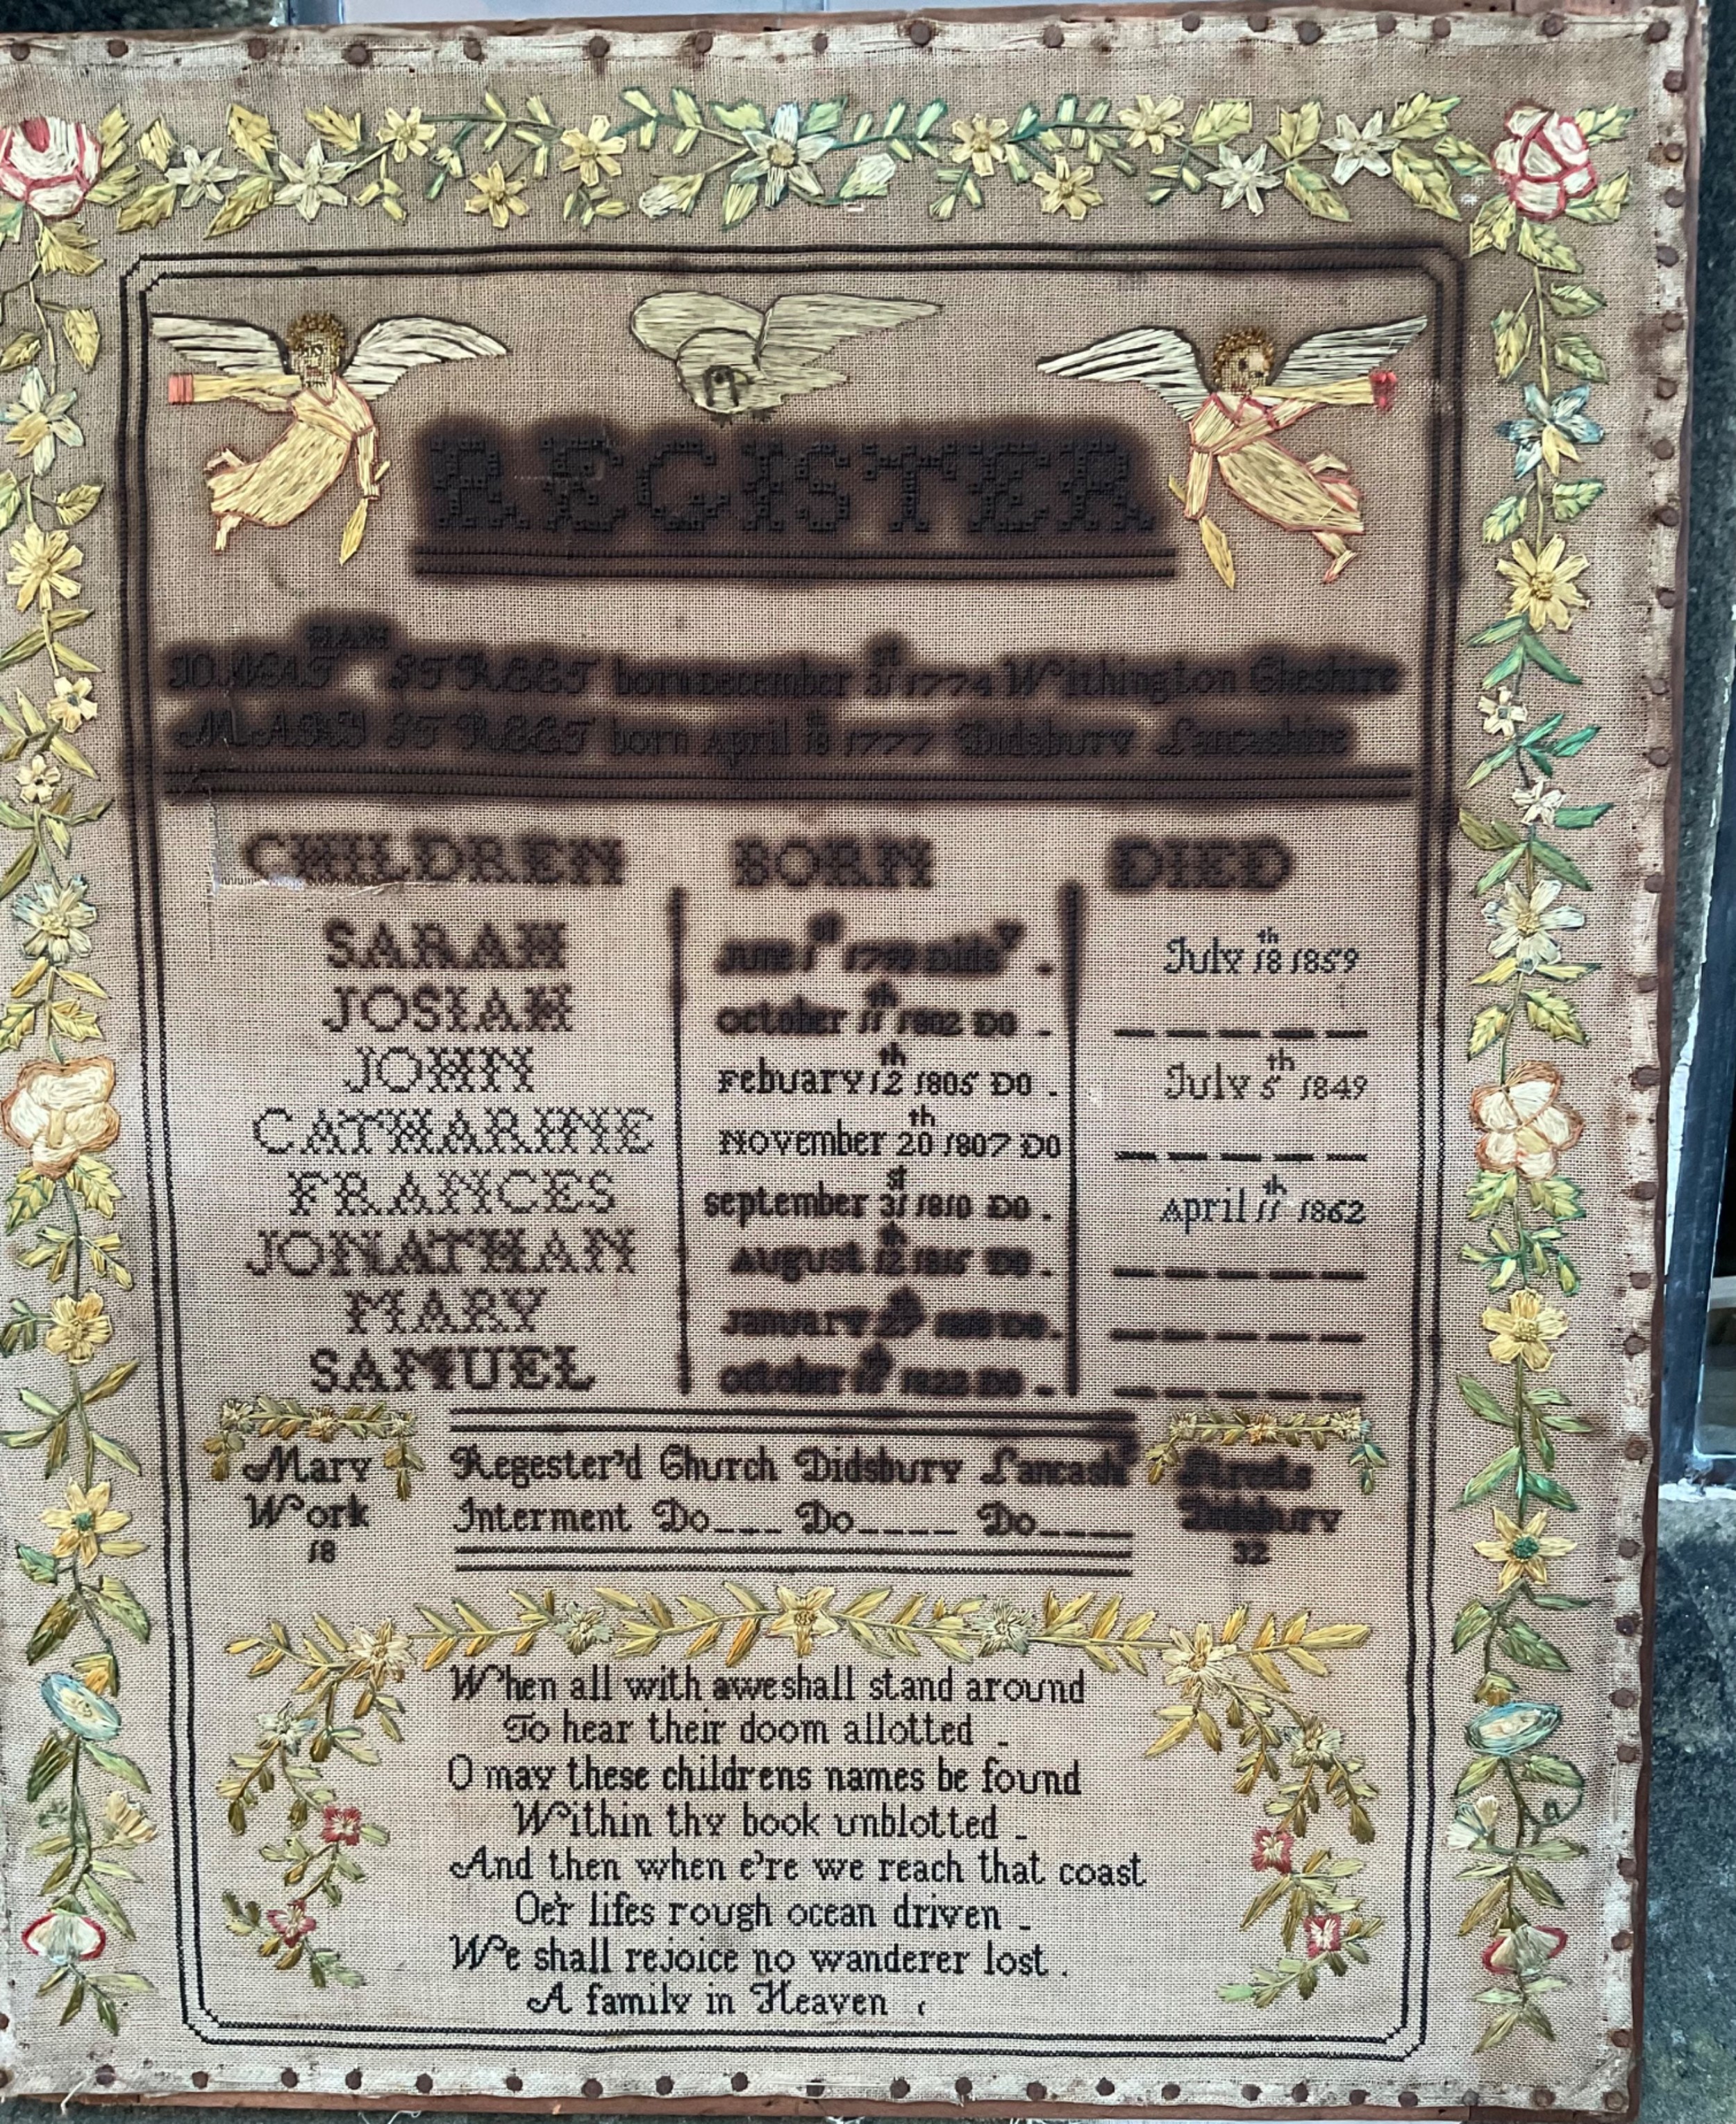 REGISTER
STREET born December 31st 1774 Withington Cheshire
MARY STREET born April 18 1777 Didsbury Lancashire
CHILDREN BORN DIED
SARAH June 1st 1799 Didsy. July 18th 1859
JOSIAH October 11th 1802 DO - _ _ _ _ _
JOHN Febuary 12th 1805 DO. July 5th 1849
CATHARINE November 20th 1807 DO _ _ _ _ _
FRANCES september 31st 1810 DO. April 11th 1862
JONATHAN August 12th 1815 DO. _ _ _ _ _
MARY January DO. _ _ _ _ _
SAMUEL october 1822 DO - _ _ _ _ _
Mary Regester'd Church Didsbury Lancashr Streets
Work Interment Do___ Do____ Do____ Didsbury
18 32
When all with awe shall stand around
To hear their doom allotted -
O may these childrens names be found
Within thy book unblotted -
And then when e're we reach that coast
Oe'r lifes rough ocean driven -
We shall rejoice no wanderer lost.
A family in Heaven